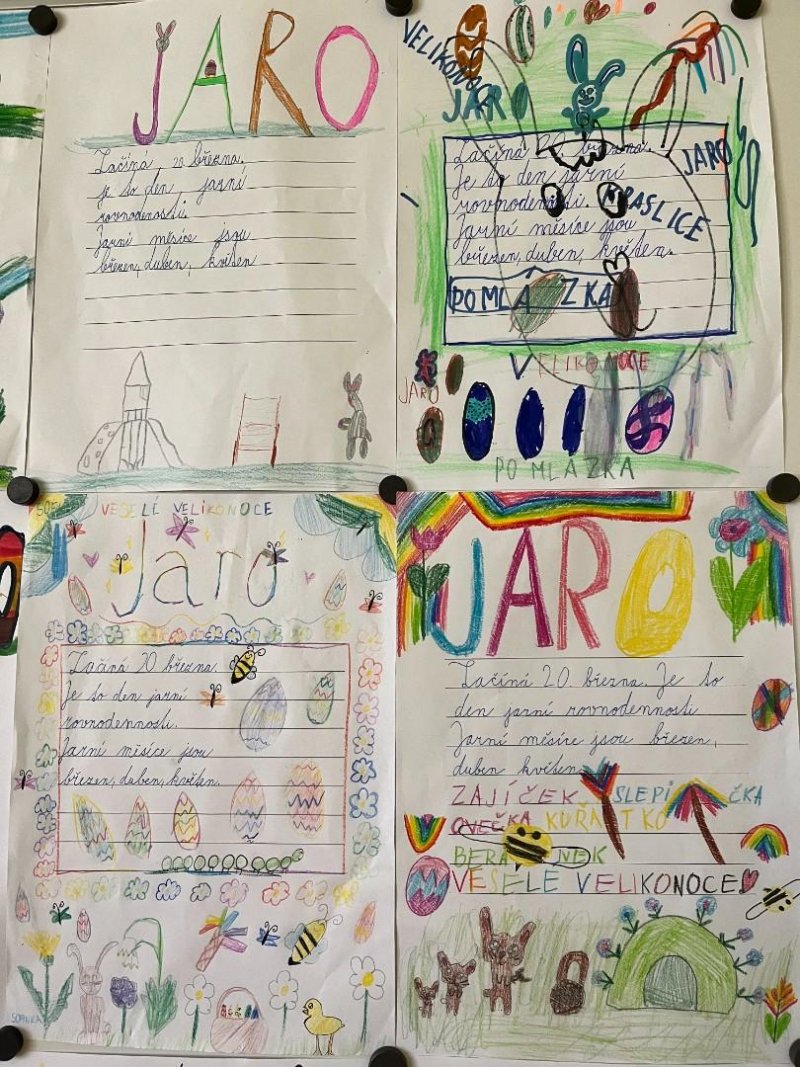 JARO
Začíná 20. března.
Je to den jarní
rovnodennosti.
Jarní měsíce jsou
březen, duben, květen
VELIKONOCE
JARO
Začíná 20. března.
Je to den jarní
rovnodennosti.
Jarní měsíce jsou
březen, duben, květen.
JARO
KRASLICE
POMLÁZKA
VELIKONOCE
JARO
POMLÁZKA
VESELÉ VELIKONOCE
Jaro
Začíná 20. března.
Je to den jarní
rovnodennosti.
Jarní měsíce jsou
březen, duben, květen.
JARO
Začíná 20. března. Je to
den jarní rovnodennosti
Jarní měsíce jsou březen,
duben květen.
ZAJÍČEK SLEPIČKA
OVEČKA KUŘÁTKO
BERÁNEK
VESELÉ VELIKONOCE